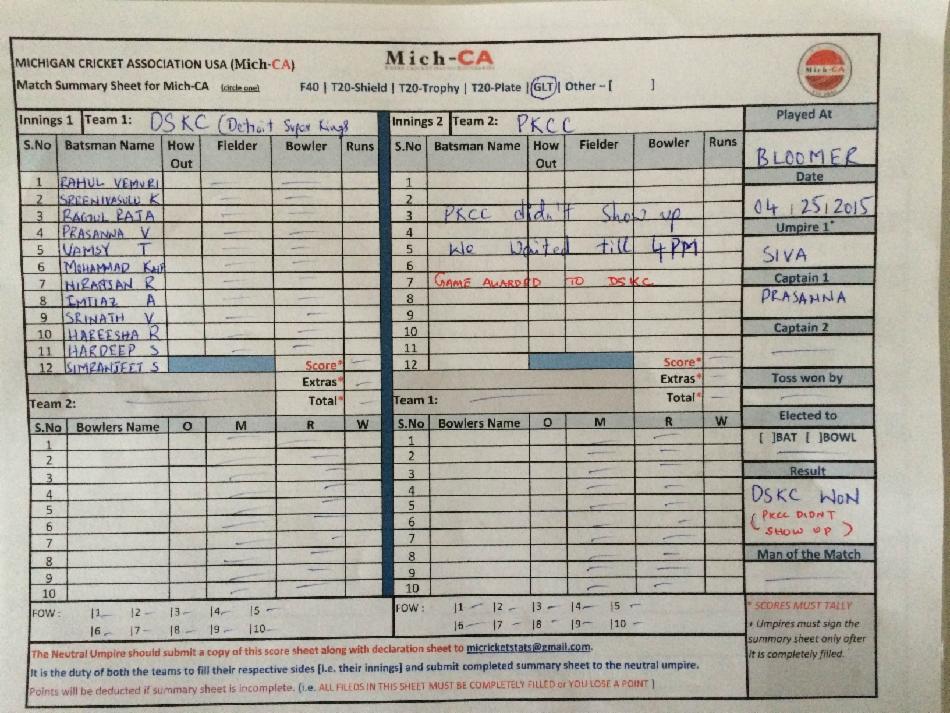 Mich-CA
MICHIGAN CRICKET ASSOCIATION USA (Mich-CA)
Match Summary Sheet for Mich-CA (circle one) F40 | T20-Shield | T20-Trophy | T20-Plate | GLT | Other – [ ]
Mich-CA
Innings 1 Team 1: DSKC (Detroit Super Kings
S.No Batsman Name How Out Fielder Bowler Runs
1 RAHUL VEMURI
2 SREENIVASULU K
3 RAGUL RAJA
4 PRASANNA V
5 VAMSY T
6 MOHAMMAD
7 NIRANJAN R
8 IMTIAZ A
9 SRINATH V
10 HAREESHA R
11 HARDEEP S
12 SIMRANJEET S Score*
Extras*
Total*
Team 2:
S.No Bowlers Name O M R W
1
2
3
4
5
6
7
8
9
10
FOW : |1 |2 |3 |4 |5
|6 |7 |8 |9 |10
Innings 2 Team 2: PKCC
S.No Batsman Name How Out Fielder Bowler Runs
1
2
3 PKCC didn't Show up
4
5 We Waited till 4PM
6
7 GAME AWARDED TO DSKC
8
9
10
11
12 Score*
Extras*
Total*
Team 1:
S.No Bowlers Name O M R W
1
2
3
4
5
6
7
8
9
10
FOW : |1 |2 |3 |4 |5
|6 |7 |8 |9 |10
Played At
BLOOMER
Date
04 | 25 | 2015
Umpire 1*
SIVA
Captain 1
PRASANNA
Captain 2
Toss won by
Elected to
[ ]BAT [ ]BOWL
Result
DSKC WON
(PKCC DIDNT
SHOW UP)
Man of the Match
* SCORES MUST TALLY
* Umpires must sign the
summary sheet only after
it is completely filled.
The Neutral Umpire should submit a copy of this score sheet along with declaration sheet to micricketstats@gmail.com.
It is the duty of both the teams to fill their respective sides [i.e. their innings] and submit completed summary sheet to the neutral umpire.
Points will be deducted if summary sheet is incomplete. (i.e. ALL FILEDS IN THIS SHEET MUST BE COMPLETELY FILLED or YOU LOSE A POINT )